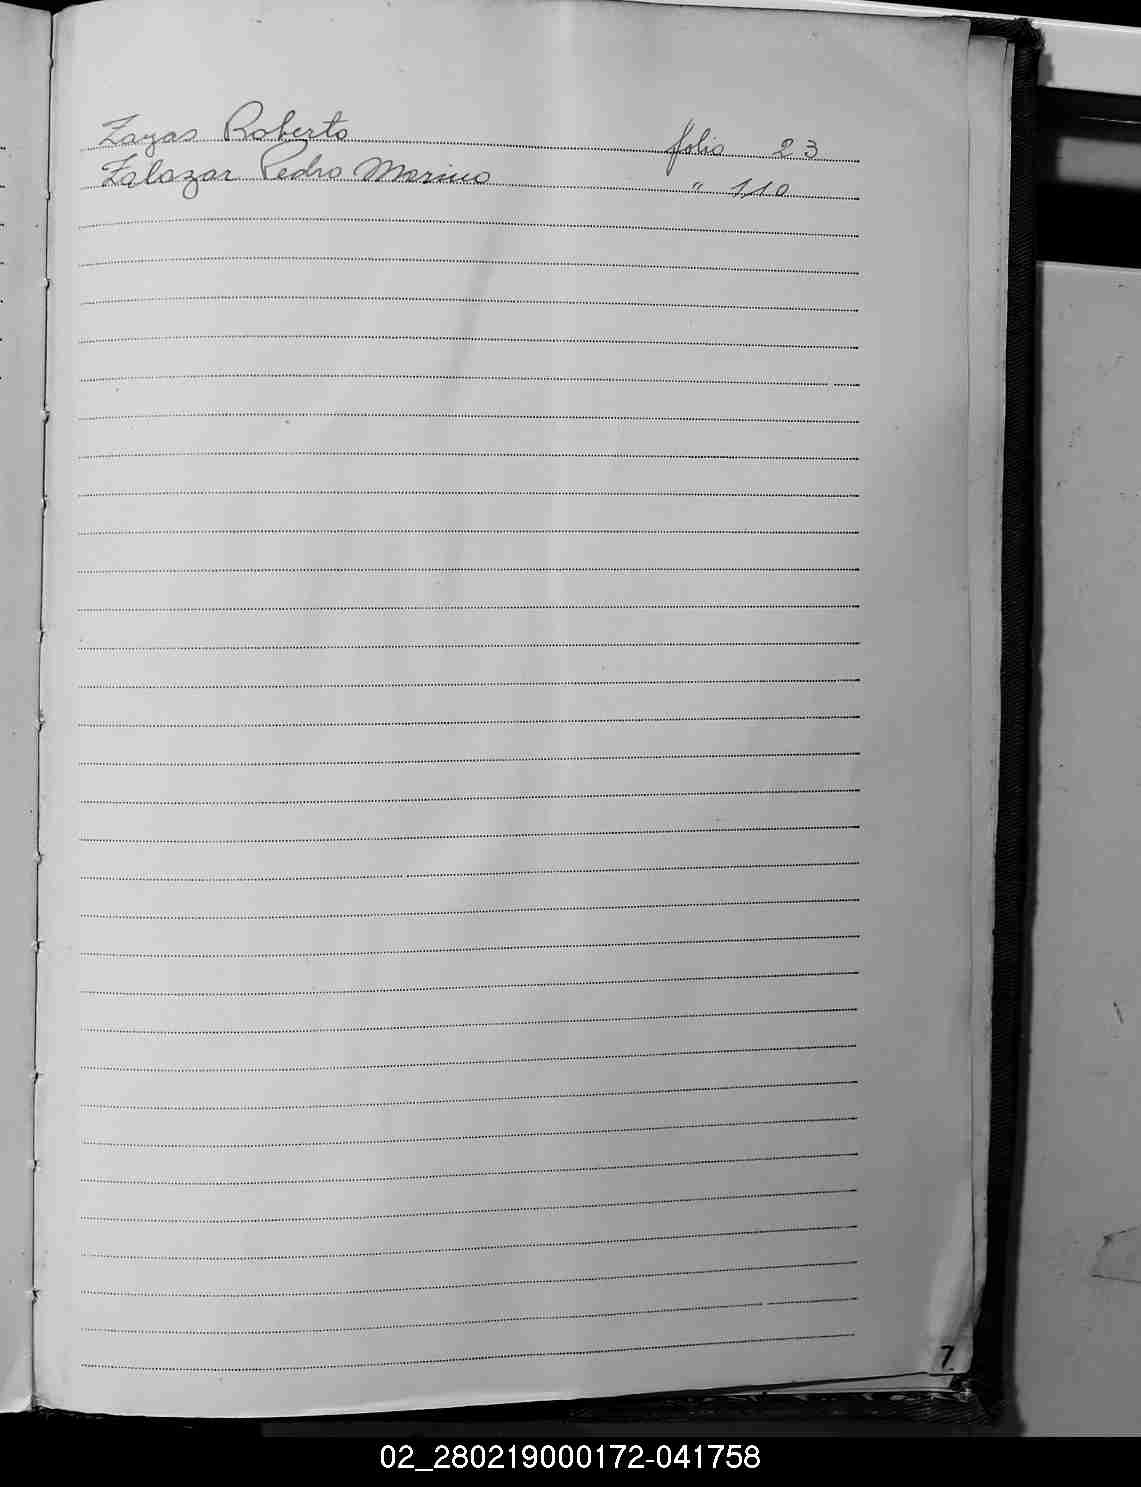 Zayas Roberto folio 23
Zalazar Pedro Marino " 110
7
02_280219000172-041758